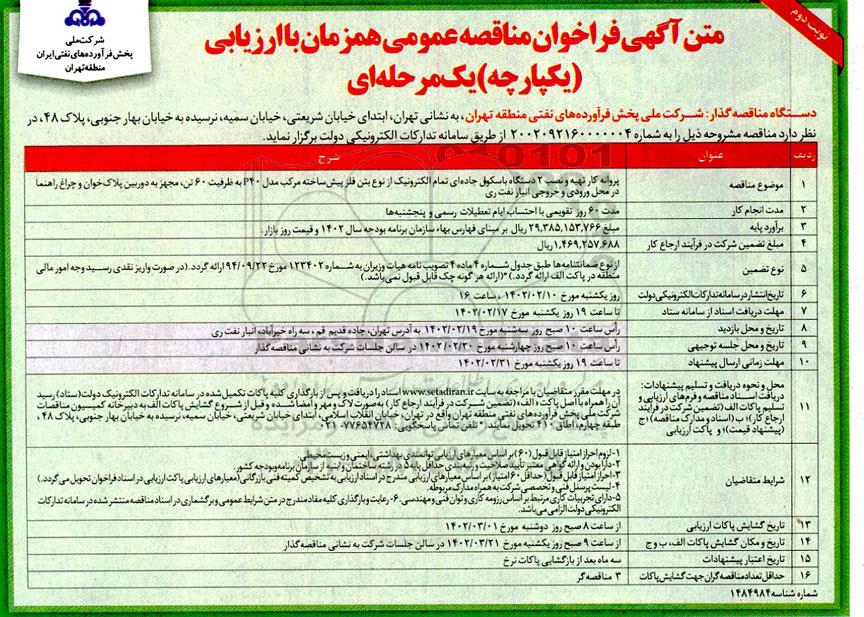 نوبت دوم
شرکت ملی
پخش فرآورده‌های نفتی ایران
منطقه تهران
متن آگهی فراخوان مناقصه عمومی همزمان با ارزیابی
(یکپارچه) یک مرحله‌ای
دستگاه مناقصه گذار: شرکت ملی پخش فرآورده‌های نفتی منطقه تهران، به نشانی تهران، ابتدای خیابان شریعتی، خیابان سمیه، نرسیده به خیابان بهار جنوبی، پلاک ۴۸، در
نظر دارد مناقصه مشروحه ذیل را به شماره ۲۰۰۲۰۹۲۱۶۰۰۰۰۰۰۴ از طریق سامانه تدارکات الکترونیکی دولت برگزار نماید.
ردیف عنوان شرح
۱ موضوع مناقصه پروانه کار تهیه و نصب ۲ دستگاه باسکول جاده‌ای تمام الکترونیک از نوع بتن فلز پیش‌ساخته مرکب مدل P۴۰ به ظرفیت ۶۰ تن، مجهز به دوربین پلاک‌خوان و چراغ راهنما
در محل ورودی و خروجی انبار نفت ری
۲ مدت انجام کار مدت ۶۰ روز تقویمی با احتساب ایام تعطیلات رسمی و پنجشنبه‌ها
۳ برآورد پایه مبلغ ۲۹,۳۸۵,۱۵۳,۷۶۶ ریال بر مبنای فهارس بهاء سازمان برنامه بودجه سال ۱۴۰۲ و قیمت روز بازار.
۴ مبلغ تضمین شرکت در فرآیند ارجاع کار ۱,۴۶۹,۲۵۷,۶۸۸ ریال
۵ نوع تضمین از نوع ضمانتنامه‌ها طبق جدول شماره ۴ ماده ۴ تصویب نامه هیات وزیران به شماره ۱۲۳۴۰۲ مورخ ۹۴/۰۹/۲۲ ارائه گردد. (در صورت واریز نقدی رسید وجه امور مالی
منطقه در پاکت الف ارائه گردد.)*(ارائه هر گونه چک قابل قبول نمی‌باشد.)
۶ تاریخ انتشار در سامانه تدارکات الکترونیکی دولت روز یکشنبه مورخ ۱۴۰۲/۰۲/۱۰، ساعت ۱۶
۷ مهلت دریافت اسناد از سامانه ستاد تا ساعت ۱۹ روز یکشنبه مورخ ۱۴۰۲/۰۲/۱۷
۸ تاریخ و محل بازدید رأس ساعت ۱۰ صبح روز سه‌شنبه مورخ ۱۴۰۲/۰۲/۱۹ به آدرس تهران، جاده قدیم قم، سه راه خیرآباد، انبار نفت ری
۹ تاریخ و محل جلسه توجیهی رأس ساعت ۱۰ صبح روز چهارشنبه مورخ ۱۴۰۲/۰۲/۲۰ در سالن جلسات شرکت به نشانی مناقصه‌گذار
۱۰ مهلت زمانی ارسال پیشنهاد تا ساعت ۱۹ روز یکشنبه مورخ ۱۴۰۲/۰۲/۳۱
۱۱ محل و نحوه دریافت و تسلیم پیشنهادات: دریافت اسناد مناقصه و فرم‌های ارزیابی و تسلیم پاکات الف (تضمین شرکت در فرآیند ارجاع کار)؛ ب (اسناد و مدارک مناقصه)؛ ج (پیشنهاد قیمت)؛ و پاکت ارزیابی
در مهلت مقرر متقاضیان با مراجعه به سایت www.setadiran.ir اسناد را دریافت و پس از بارگذاری کلیه پاکات تکمیل شده در سامانه تدارکات الکترونیک دولت (ستاد) رسید
آن را همراه با اصل پاکت «الف» (تضمین شرکت در فرآیند ارجاع کار) به‌صورت لاک و مهر و امضا شده و قبل از شروع گشایش پاکات الف به دبیرخانه کمیسیون مناقصات
شرکت ملی پخش فرآورده‌های نفتی منطقه تهران واقع در تهران، خیابان انقلاب اسلامی، ابتدای خیابان شریعتی، خیابان سمیه، نرسیده به خیابان بهار جنوبی، پلاک ۴۸،
طبقه چهارم، اطاق ۴۱۰ تحویل نمایند. تلفن تماس پاسخگویی: ۷۷۶۵۴۷۲۸-۰۲۱
۱۲ شرایط متقاضیان ۱-لزوم احراز امتیاز قابل قبول (۶۰) بر اساس معیارهای ارزیابی توانمندی بهداشتی، ایمنی و زیست‌محیطی.
۲-دارا بودن و ارائه گواهی معتبر تأیید صلاحیت و رتبه‌بندی حداقل پایه ۵ در رشته ساختمان و ابنیه از سازمان برنامه و بودجه کشور.
۳-احراز امتیاز قابل قبول (حداقل ۶۰ امتیاز) بر اساس معیارهای ارزیابی مندرج در اسناد ارزیابی به تشخیص کمیته فنی بازرگانی (معیارهای ارزیابی پاکت ارزیابی در اسناد فراخوان تحویل می‌گردد.)
۴-لیست پرسنل فنی و تخصصی شرکت به همراه مدارک مربوطه.
۵-دارای تجربیات کاری مرتبط بر اساس رزومه کاری و توان فنی و مهندسی. ۶-رعایت و بارگذاری کلیه مفاد مندرج در متن شرایط عمومی و بر گشماری در اسناد مناقصه منتشر شده در سامانه تدارکات
الکترونیکی دولت الزامی می‌باشد.
۱۳ تاریخ گشایش پاکات ارزیابی از ساعت ۸ صبح روز دوشنبه مورخ ۱۴۰۲/۰۳/۰۱
۱۴ تاریخ و مکان گشایش پاکات الف، ب و ج از ساعت ۹ صبح روز یکشنبه مورخ ۱۴۰۲/۰۳/۲۱ در سالن جلسات شرکت به نشانی مناقصه‌گذار
۱۵ تاریخ اعتبار پیشنهادات سه ماه بعد از بازگشایی پاکات نرخ
۱۶ حداقل تعداد مناقصه‌گران جهت گشایش پاکات ۳ مناقصه‌گر
شماره شناسه ۱۴۸۴۹۸۴